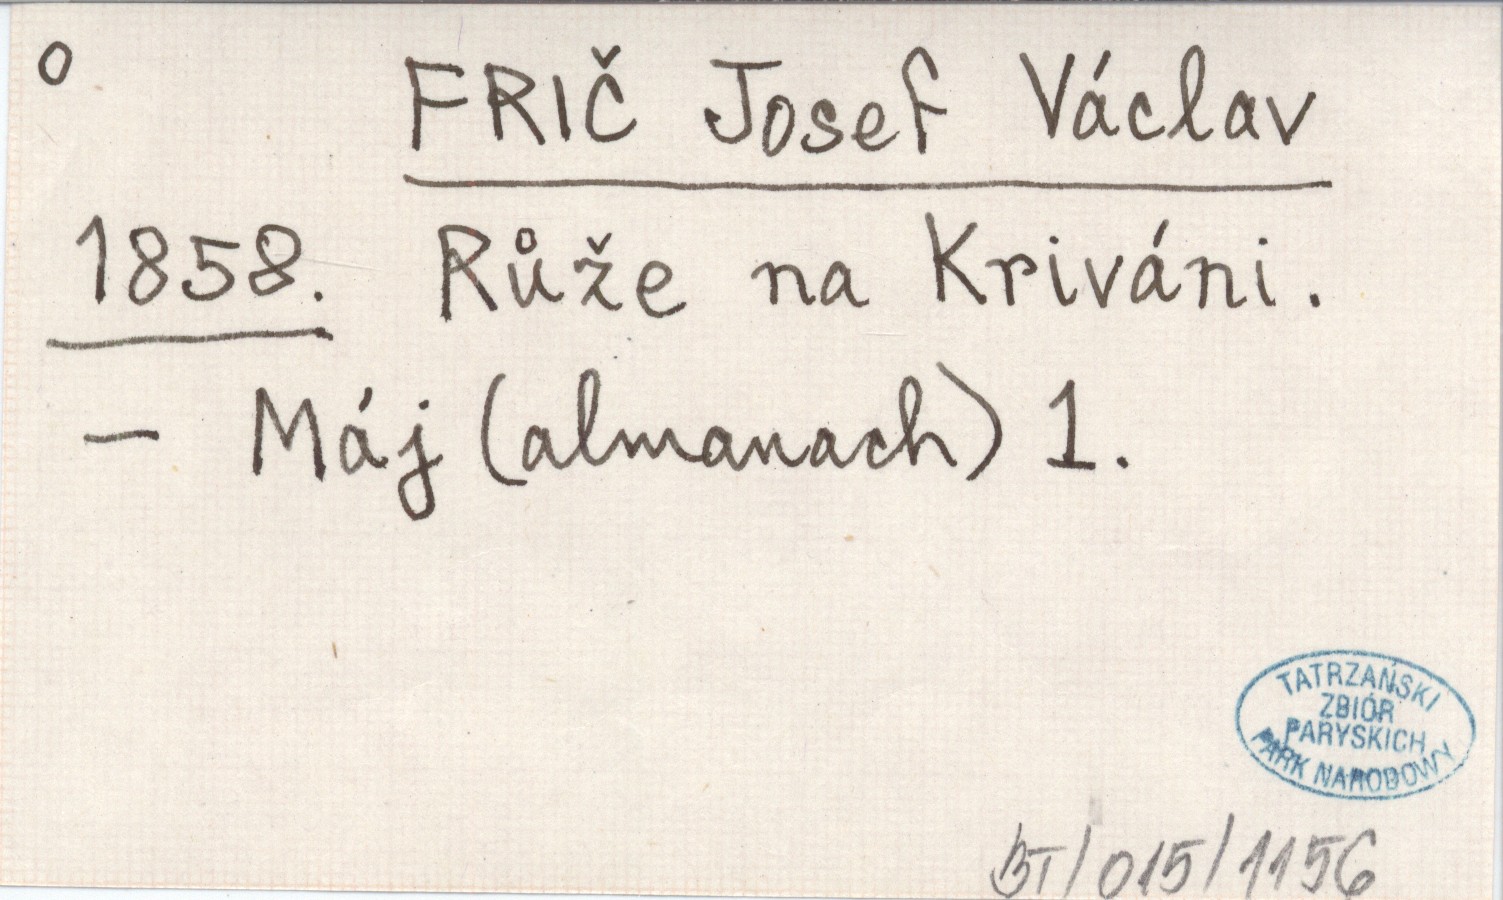 o FRIČ Josef Václav
1858. Růže na Kriváni.
— Máj (almanach) 1.
TATRZAŃSKI
ZBIÓR
PARYSKICH
PARK NARODOWY
BT/015/1156